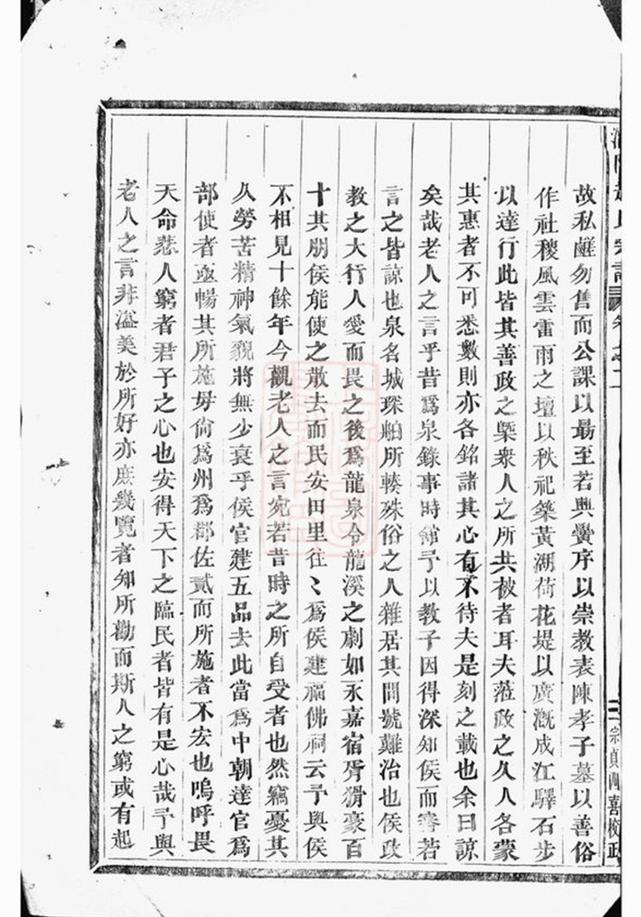 故私鹺勿售而公課以最至若興黌序以崇教表陳孝子墓以善俗
作社稷風雲雷雨之壇以秩祀築黃湖荷花堤以廣溉成江驛石步
以達行此皆其善政之槩衆人之所共被者耳夫蒞政之久人各蒙
其惠者不可悉數則亦各銘諸其心有不待夫是刻之載也余曰諒
矣哉老人之言乎昔爲泉錄事時館予以教子因得深知侯而審若
言之皆諒也泉名城琛舶所輳殊俗之人雜居其間號難治也侯政
教之大行人愛而畏之後爲龍泉令龍溪之劇如永嘉宿胥猾豪百
十其朋侯能使之散去而民安田里往〻爲侯建福佛祠云予與侯
不相見十餘年今觀老人之言宛若昔時之所自受者也然竊憂其
久勞苦精神氣貌將無少衰乎侯官建五品去此當爲中朝達官爲
部使者亟暢其所施毋尚爲州爲郡佐貳而所施者不宏也嗚呼畏
天命悲人窮者君子之心也安得天下之臨民者皆有是心哉予與
老人之言非溢美於所好亦庶幾覽者知所勸而斯人之窮或有起